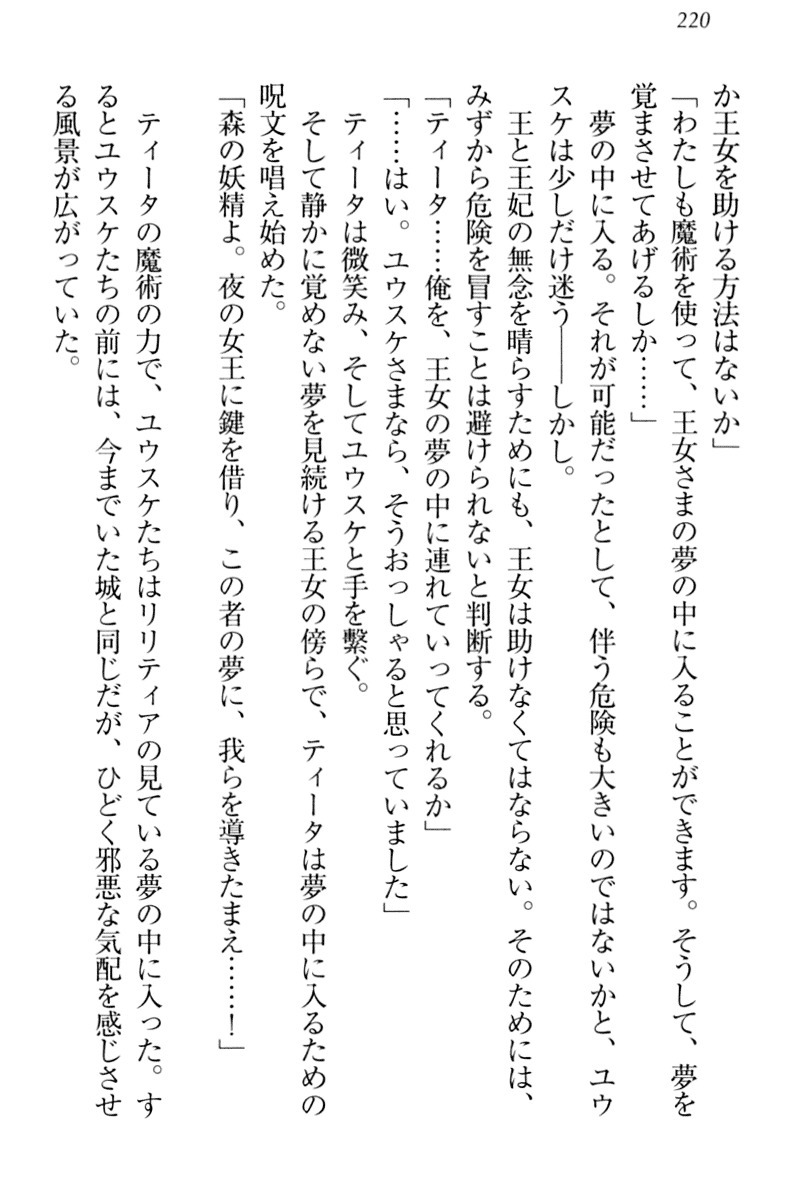 220
か王女を助ける方法はないか」
「わたしも魔術を使って、王女さまの夢の中に入ることができます。そうして、夢を
覚まさせてあげるしか……」
夢の中に入る。それが可能だったとして、伴う危険も大きいのではないかと、ユウ
スケは少しだけ迷う――しかし。
王と王妃の無念を晴らすためにも、王女は助けなくてはならない。そのためには、
みずから危険を冒すことは避けられないと判断する。
「ティータ……俺を、王女の夢の中に連れていってくれるか」
「……はい。ユウスケさまなら、そうおっしゃると思っていました」
ティータは微笑み、そしてユウスケと手を繋ぐ。
そして静かに覚めない夢を見続ける王女の傍らで、ティータは夢の中に入るための
呪文を唱え始めた。
「森の妖精よ。夜の女王に鍵を借り、この者の夢に、我らを導きたまえ……！」
ティータの魔術の力で、ユウスケたちはリリティアの見ている夢の中に入った。す
るとユウスケたちの前には、今までいた城と同じだが、ひどく邪悪な気配を感じさせ
る風景が広がっていた。